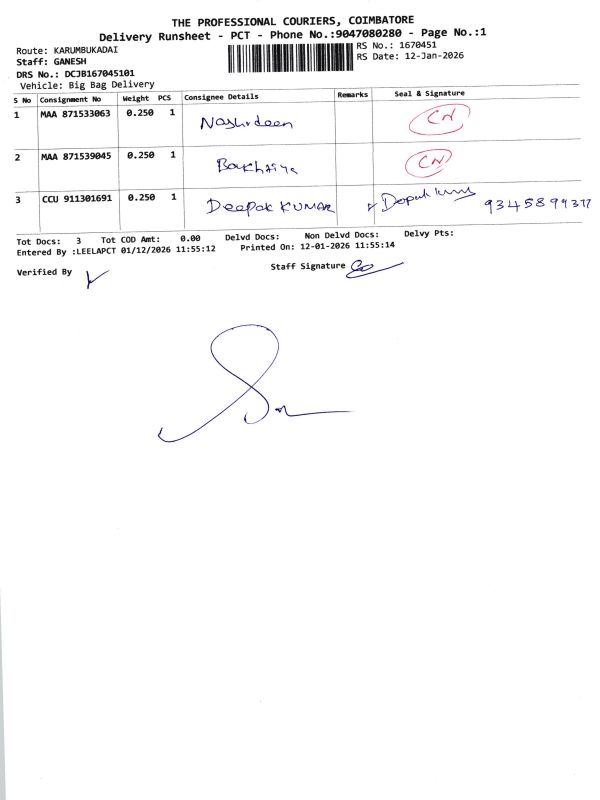 THE PROFESSIONAL COURIERS, COIMBATORE
Delivery Runsheet - PCT - Phone No.:9047080280 - Page No.:1
Route: KARUMBUKADAI
RS No.: 1670451
Staff: GANESH
RS Date: 12-Jan-2026
DRS No.: DCJB167045101
Vehicle: Big Bag Delivery
S No Consignment No Weight PCS Consignee Details Remarks Seal & Signature
1 MAA 871533063 0.250 1 Nashrdeen CN
2 MAA 871539045 0.250 1 CN
3 CCU 911301691 0.250 1 Deepak KUMAR Depak
Tot Docs: 3 Tot COD Amt: 0.00 Delvd Docs: Non Delvd Docs: Delvy Pts:
Entered By :LEELAPCT 01/12/2026 11:55:12 Printed On: 12-01-2026 11:55:14
Verified By
Staff Signature